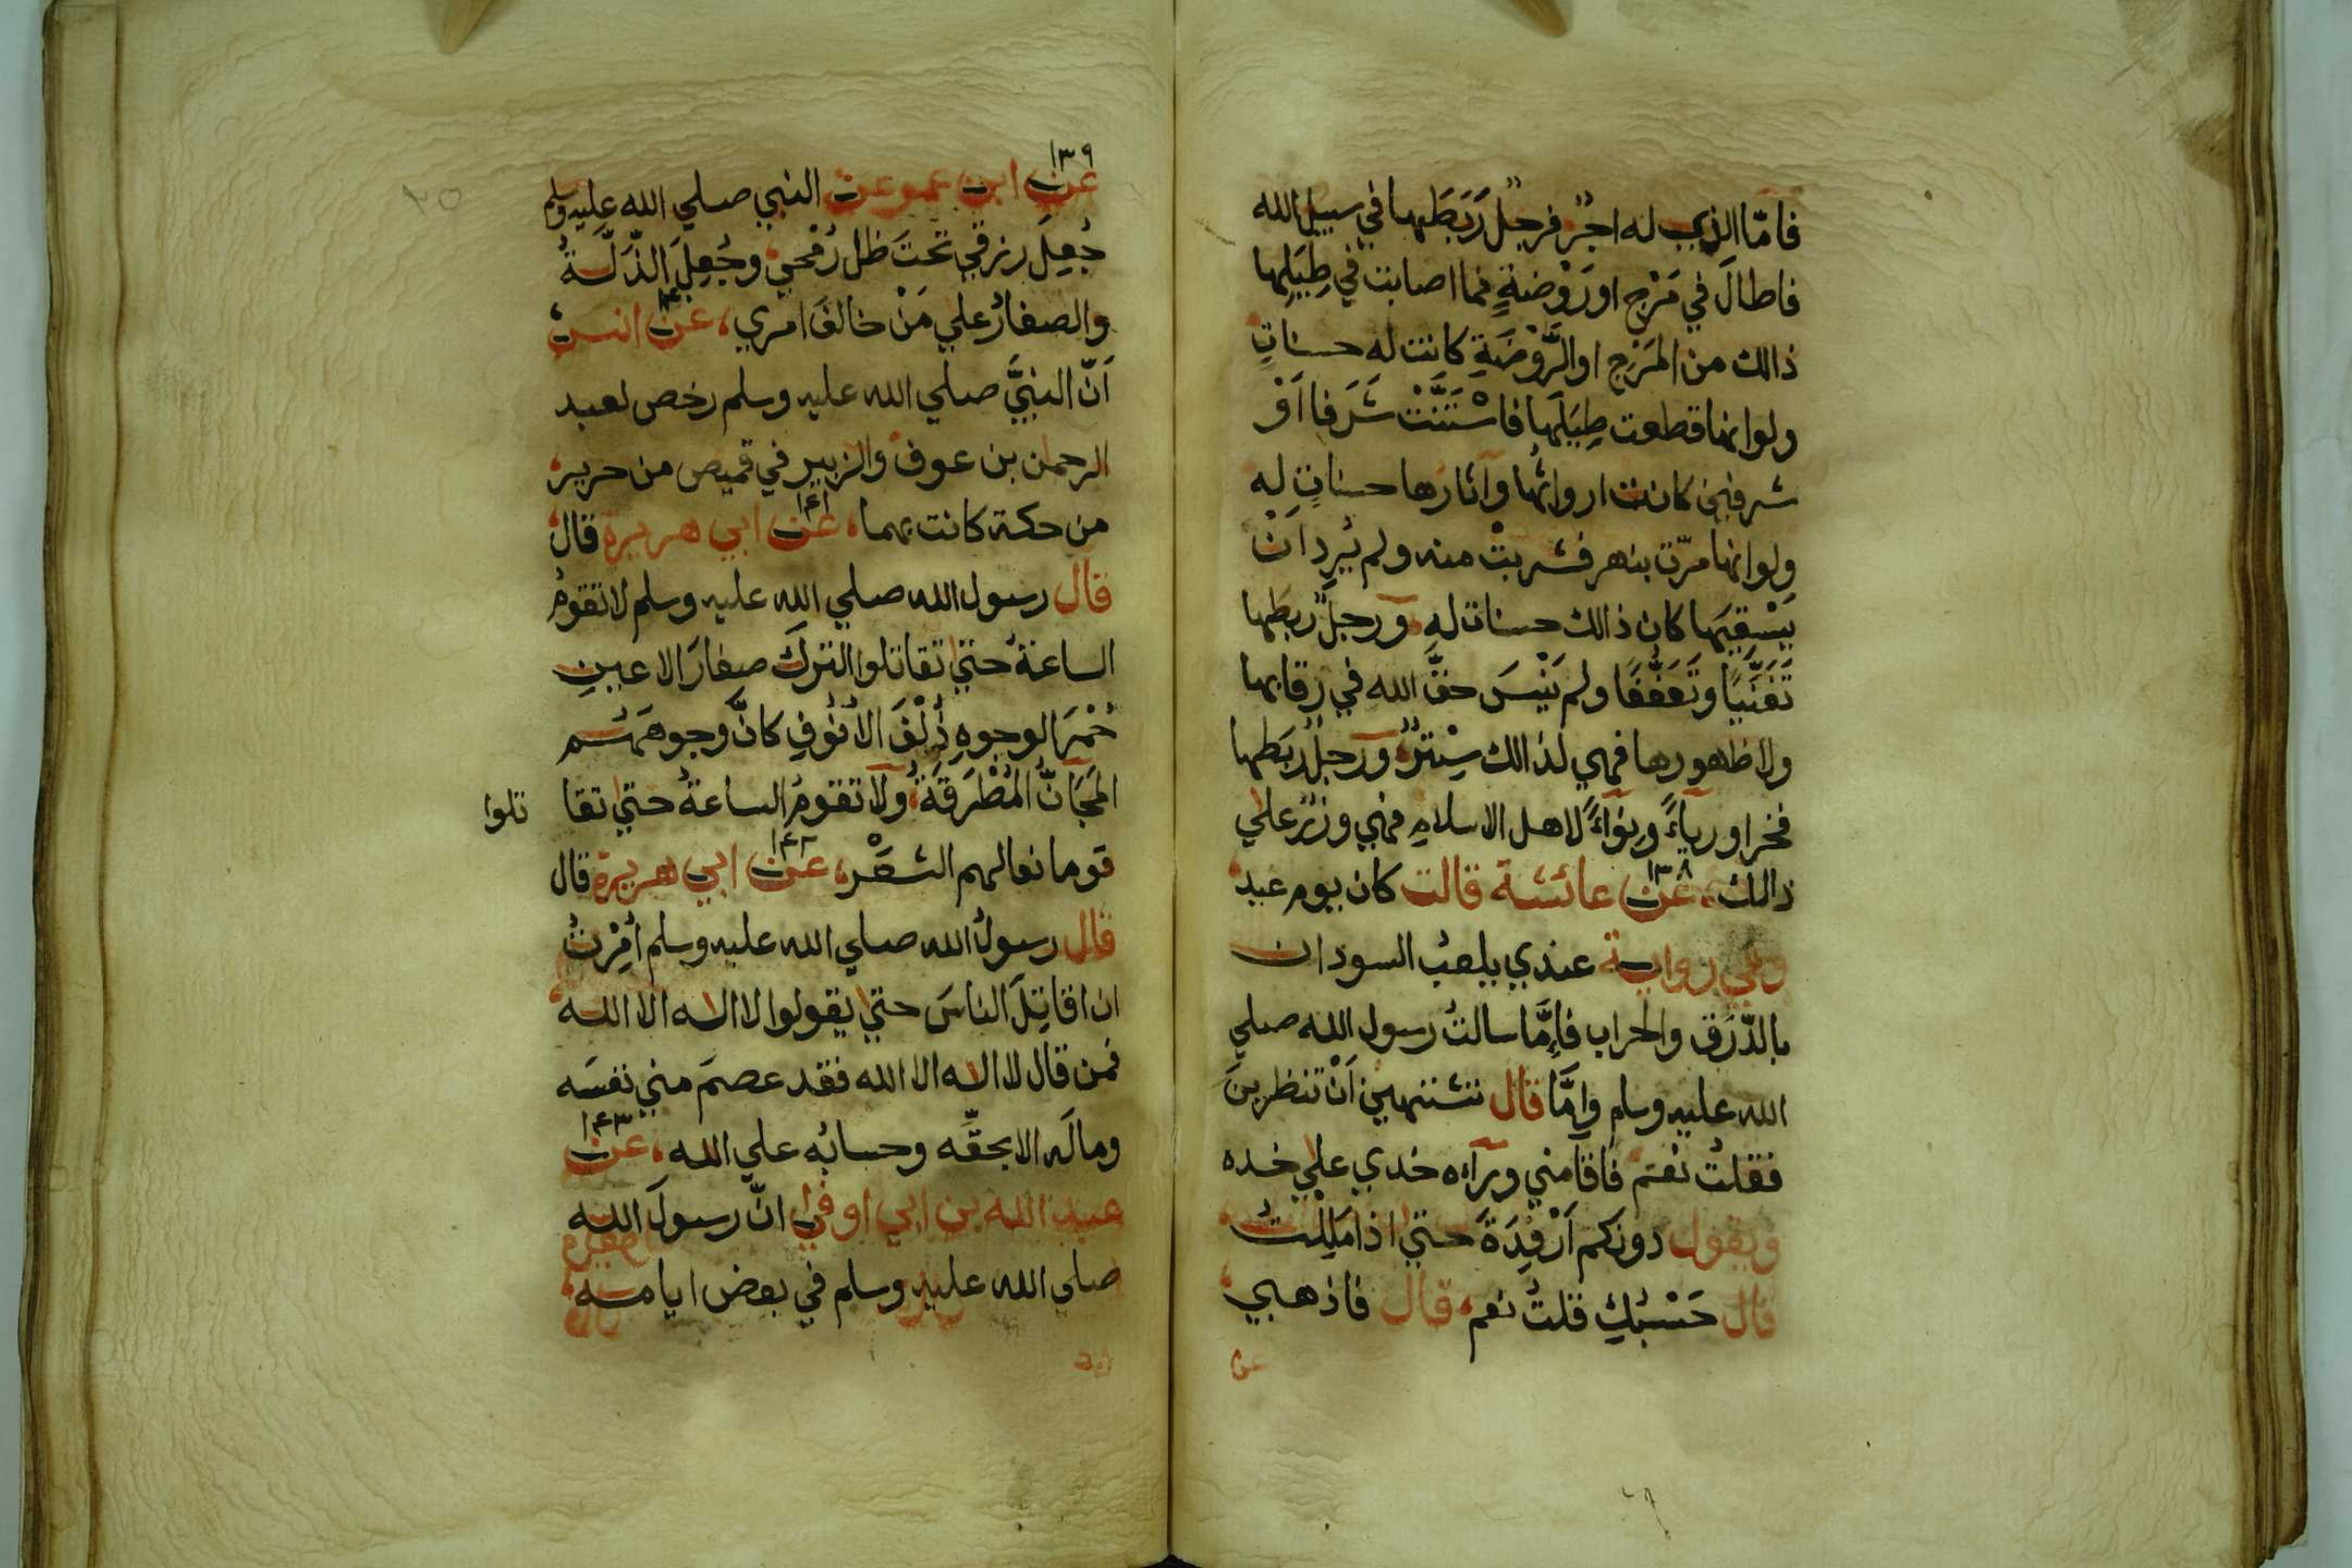 فامّا الذي له اجرٌ فرجلٌ رَبَطَها في سبيل الله
فاطالَ في مَرْجٍ او رَوْضةٍ فما اصابت في طِيَلِها
ذالك من المَرْجِ او الرَّوْضَةِ كانت له حسناتٍ
ولو انها قطعت طِيَلَها فاسْتَنَّتْ شَرَفا اَوْ
شرفين كانت ارواثُها وآثارَها حسناتٍ له
ولو انها مرّت بنهر فشربتْ منه ولم يُرِد انْ
يَسْقِيَها كان ذالك حسنات له ورجلٌ ربطها
تَغَنِّيًا وتَعَفُّفًا ولم يَنْسَ حقَّ الله في رقابها
ولا ظهورها فهي لذالك سِتْرٌ ورجلٌ ربَطها
فخرا ورياءً ونِوَاءً لاهل الاسلامِ فهي وزْرٌ علي
ذالك، ١٣٨ عن عائشة قالت كان يوم عيد
وفي رواية عندي يلعبُ السودان
بالدَّرَقِ والحراب فاِمَّا سالتُ رسول الله صلي
الله عليه وسلم واِمَّا قال تشتهين اَنْ تنظرين
فقلتُ نعم فاقامني ورآءه خدي علي خده
ويقول دونكم اَرْفِدَةَ حتي اذا مَلِلْتُ
قال حَسْبُكِ قلتُ نعم، قال فاذهبي
عن
٢٥
١٣٩
عن ابن عمر عن النبي صلي الله عليه وسلم
جُعِلَ رزقي تحتَ ظل رُمْحي وجُعِلَ الذّلّةُ
والصغارُ علي مَنْ خالفَ امري، عن انس
اَنّ النبيَّ صلي الله عليه وسلم رخص لعبد
الرحمن بن عوف والزبير في قميص من حرير
من حكة كانت بهما، ١٤١ عن ابي هريرة قال
قال رسول الله صلي الله عليه وسلم لا تقومُ
الساعةُ حتي تقاتلوا التركَ صغارَ الاعينِ
حُمْرَ الوجوهِ ذُلْفَ الاُنُوفِ كانَّ وجوهَهُم
المَجَانُّ المُطْرَقَةُ ولا تقومُ الساعةُ حتي تقا تلوا
قوما نعالهم الشعْر، ١٤٢ عن ابي هريرة قال
قال رسولُ الله صلي الله عليه وسلم اُمِرْتُ
ان اقاتِلَ الناسَ حتي يقولوا لا اله الا الله
فمن قال لا اله الا الله فقد عصمَ مني نفسَه
ومالَه الا بحقِّه وحسابُه علي الله، ١٤٣ عن
عبد الله بن ابي اوفي انّ رسولَ الله
صلي الله عليه وسلم في بعض ايامه